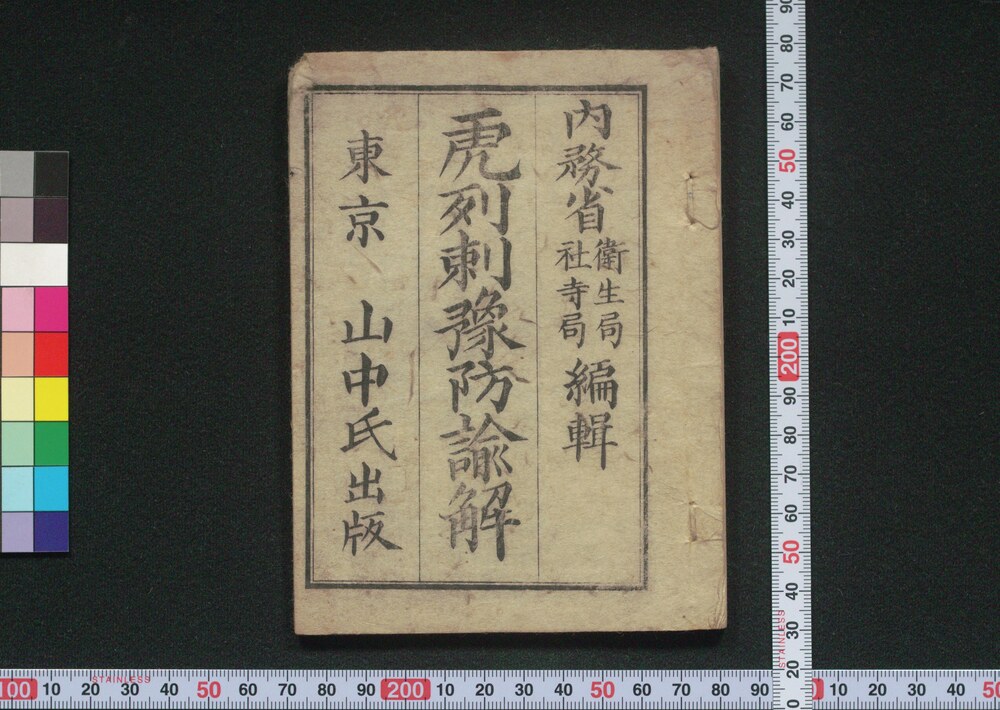 内務省衛生局社寺局編輯
虎列刺豫防諭解
東京 山中氏出版
90 80 70 60 50 40 30 20 10 200 90 80 70 60 50 40 30 20 0
STAINLESS
100 10 20 30 40 50 60 70 80 90 200 10 20 30 40 50 60 70 80 90 10 20 30 40 50
STAINLESS